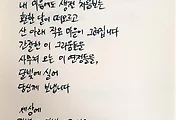 내 마음에도 생전 처음보는
환한 달이 떠오르고
산 아래 작은 마을이 그려집니다
간절한 이 그리움들을
사무쳐 오는 이 연정들을
달빛에 실어
당신께 보냅니다
세상에